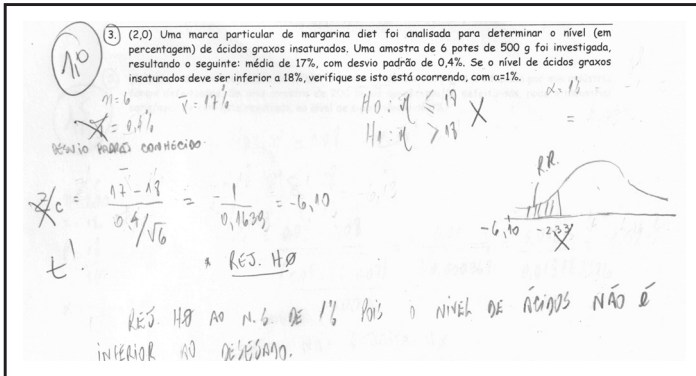 1,0
3. (2,0) Uma marca particular de margarina diet foi analisada para determinar o nível (em
percentagem) de ácidos graxos insaturados. Uma amostra de 6 potes de 500 g foi investigada,
resultando o seguinte: média de 17%, com desvio padrão de 0,4%. Se o nível de ácidos graxos
insaturados deve ser inferior a 18%, verifique se isto está ocorrendo, com α=1%.
n=6 x̄ = 17% H0: μ ≤ 18 α = 1%
= 0,4% H1: μ > 18 X =
DESVIO PADRÃO CONHECIDO.
R.R.
Zc = 17-18 / 0,4/√6 = -1 / 0,1633 = -6,10
-6,10 -2,33
t!
* REJ. HØ
REJ. HØ AO N.S. DE 1% POIS O NIVEL DE ÁCIDOS NÃO É
INFERIOR AO DESEJADO.